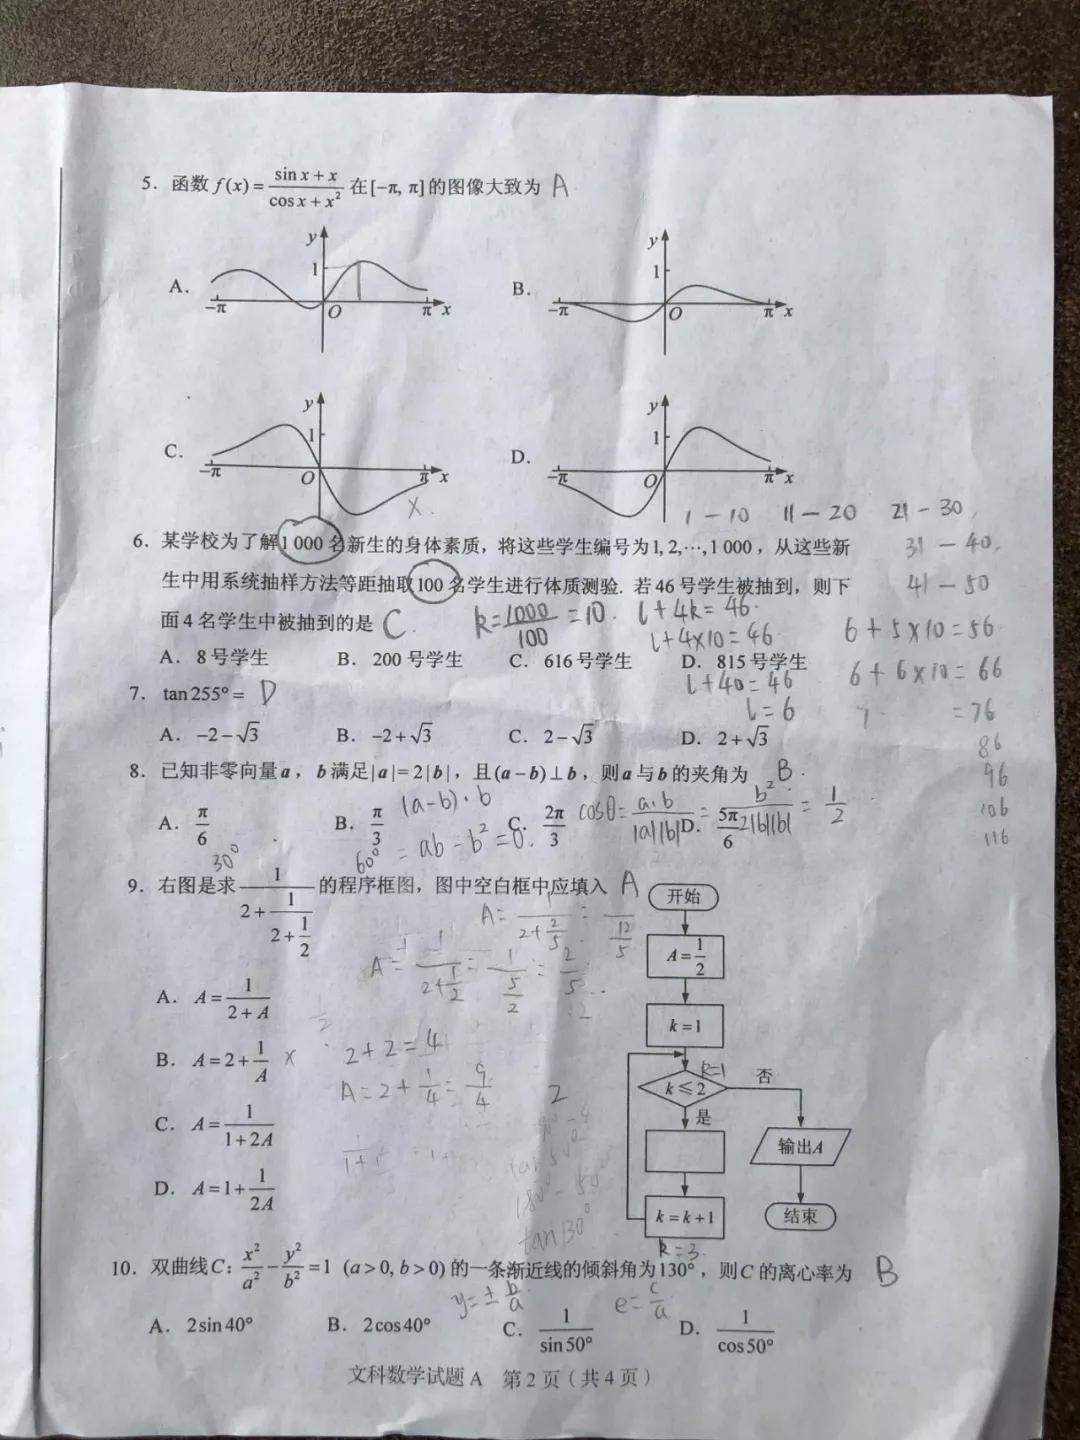 5. 函数 f(x) = (sin x + x)/(cos x + x²) 在[-π, π]的图像大致为 A
A. y 1 -π O π x
B. y 1 -π O π x
C. y 1 -π O π x
D. y 1 -π O π x
×.
1 - 10 11 - 20 21 - 30,
6. 某学校为了解1 000名新生的身体素质，将这些学生编号为1, 2,⋯, 1 000，从这些新
31 - 40,
生中用系统抽样方法等距抽取100名学生进行体质测验. 若46号学生被抽到，则下
41 - 50
面4名学生中被抽到的是 C.
k = 1000/100 = 10. l + 4k = 46.
l + 4×10 = 46
6 + 5×10 = 56
A. 8号学生 B. 200号学生 C. 616号学生 D. 815号学生
l + 40 = 46
6 + 6×10 = 66
l = 6
7 = 76
86
96
106
116
7. tan 255° = D
A. -2-√3 B. -2+√3 C. 2-√3 D. 2+√3
8. 已知非零向量a，b满足|a|=2|b|，且(a-b)⊥b，则a与b的夹角为 B.
(a-b)·b
= ab - b² = 0.
cosθ = a·b/|a||b| = b²/2|b||b| = 1/2
A. π/6 B. π/3 C. 2π/3 D. 5π/6
30° 60°
9. 右图是求 1/(2+1/(2+1/2)) 的程序框图，图中空白框中应填入 A
A = 1/(2+2/5) = 1/(12/5)
A = 1/(2+1/2) = 1/(5/2) = 2/5
A. A = 1/(2+A)
B. A = 2+1/A ×
2+2=4
A = 2+1/4 = 9/4
C. A = 1/(1+2A)
D. A = 1+1/(2A)
开始
A = 1/2
k = 1
k ≤ 2 k=1
否
是
输出A
k = k+1
结束
k=3.
180° - 50°
tan130°
10. 双曲线C: x²/a² - y²/b² = 1 (a>0, b>0) 的一条渐近线的倾斜角为130°，则C的离心率为 B
y = ± b/a
e = c/a
A. 2sin40° B. 2cos40° C. 1/sin50° D. 1/cos50°
文科数学试题A 第2页(共4页)